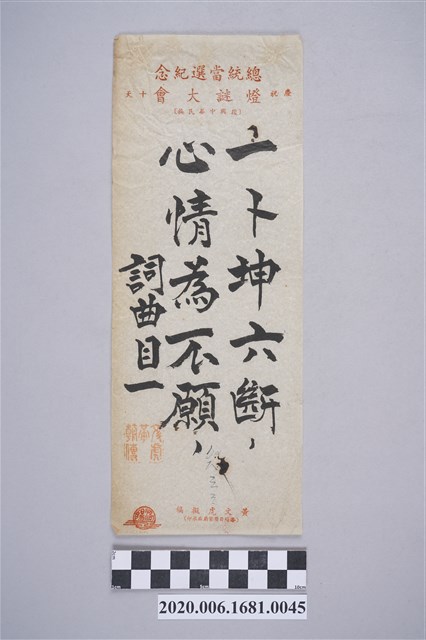 總統當選紀念
慶祝 燈謎大會 十天
一卜坤六斷，
心情為不願，
詞曲目一
黃文虎敬備
5cm
10cm
2020.006.1681.0045